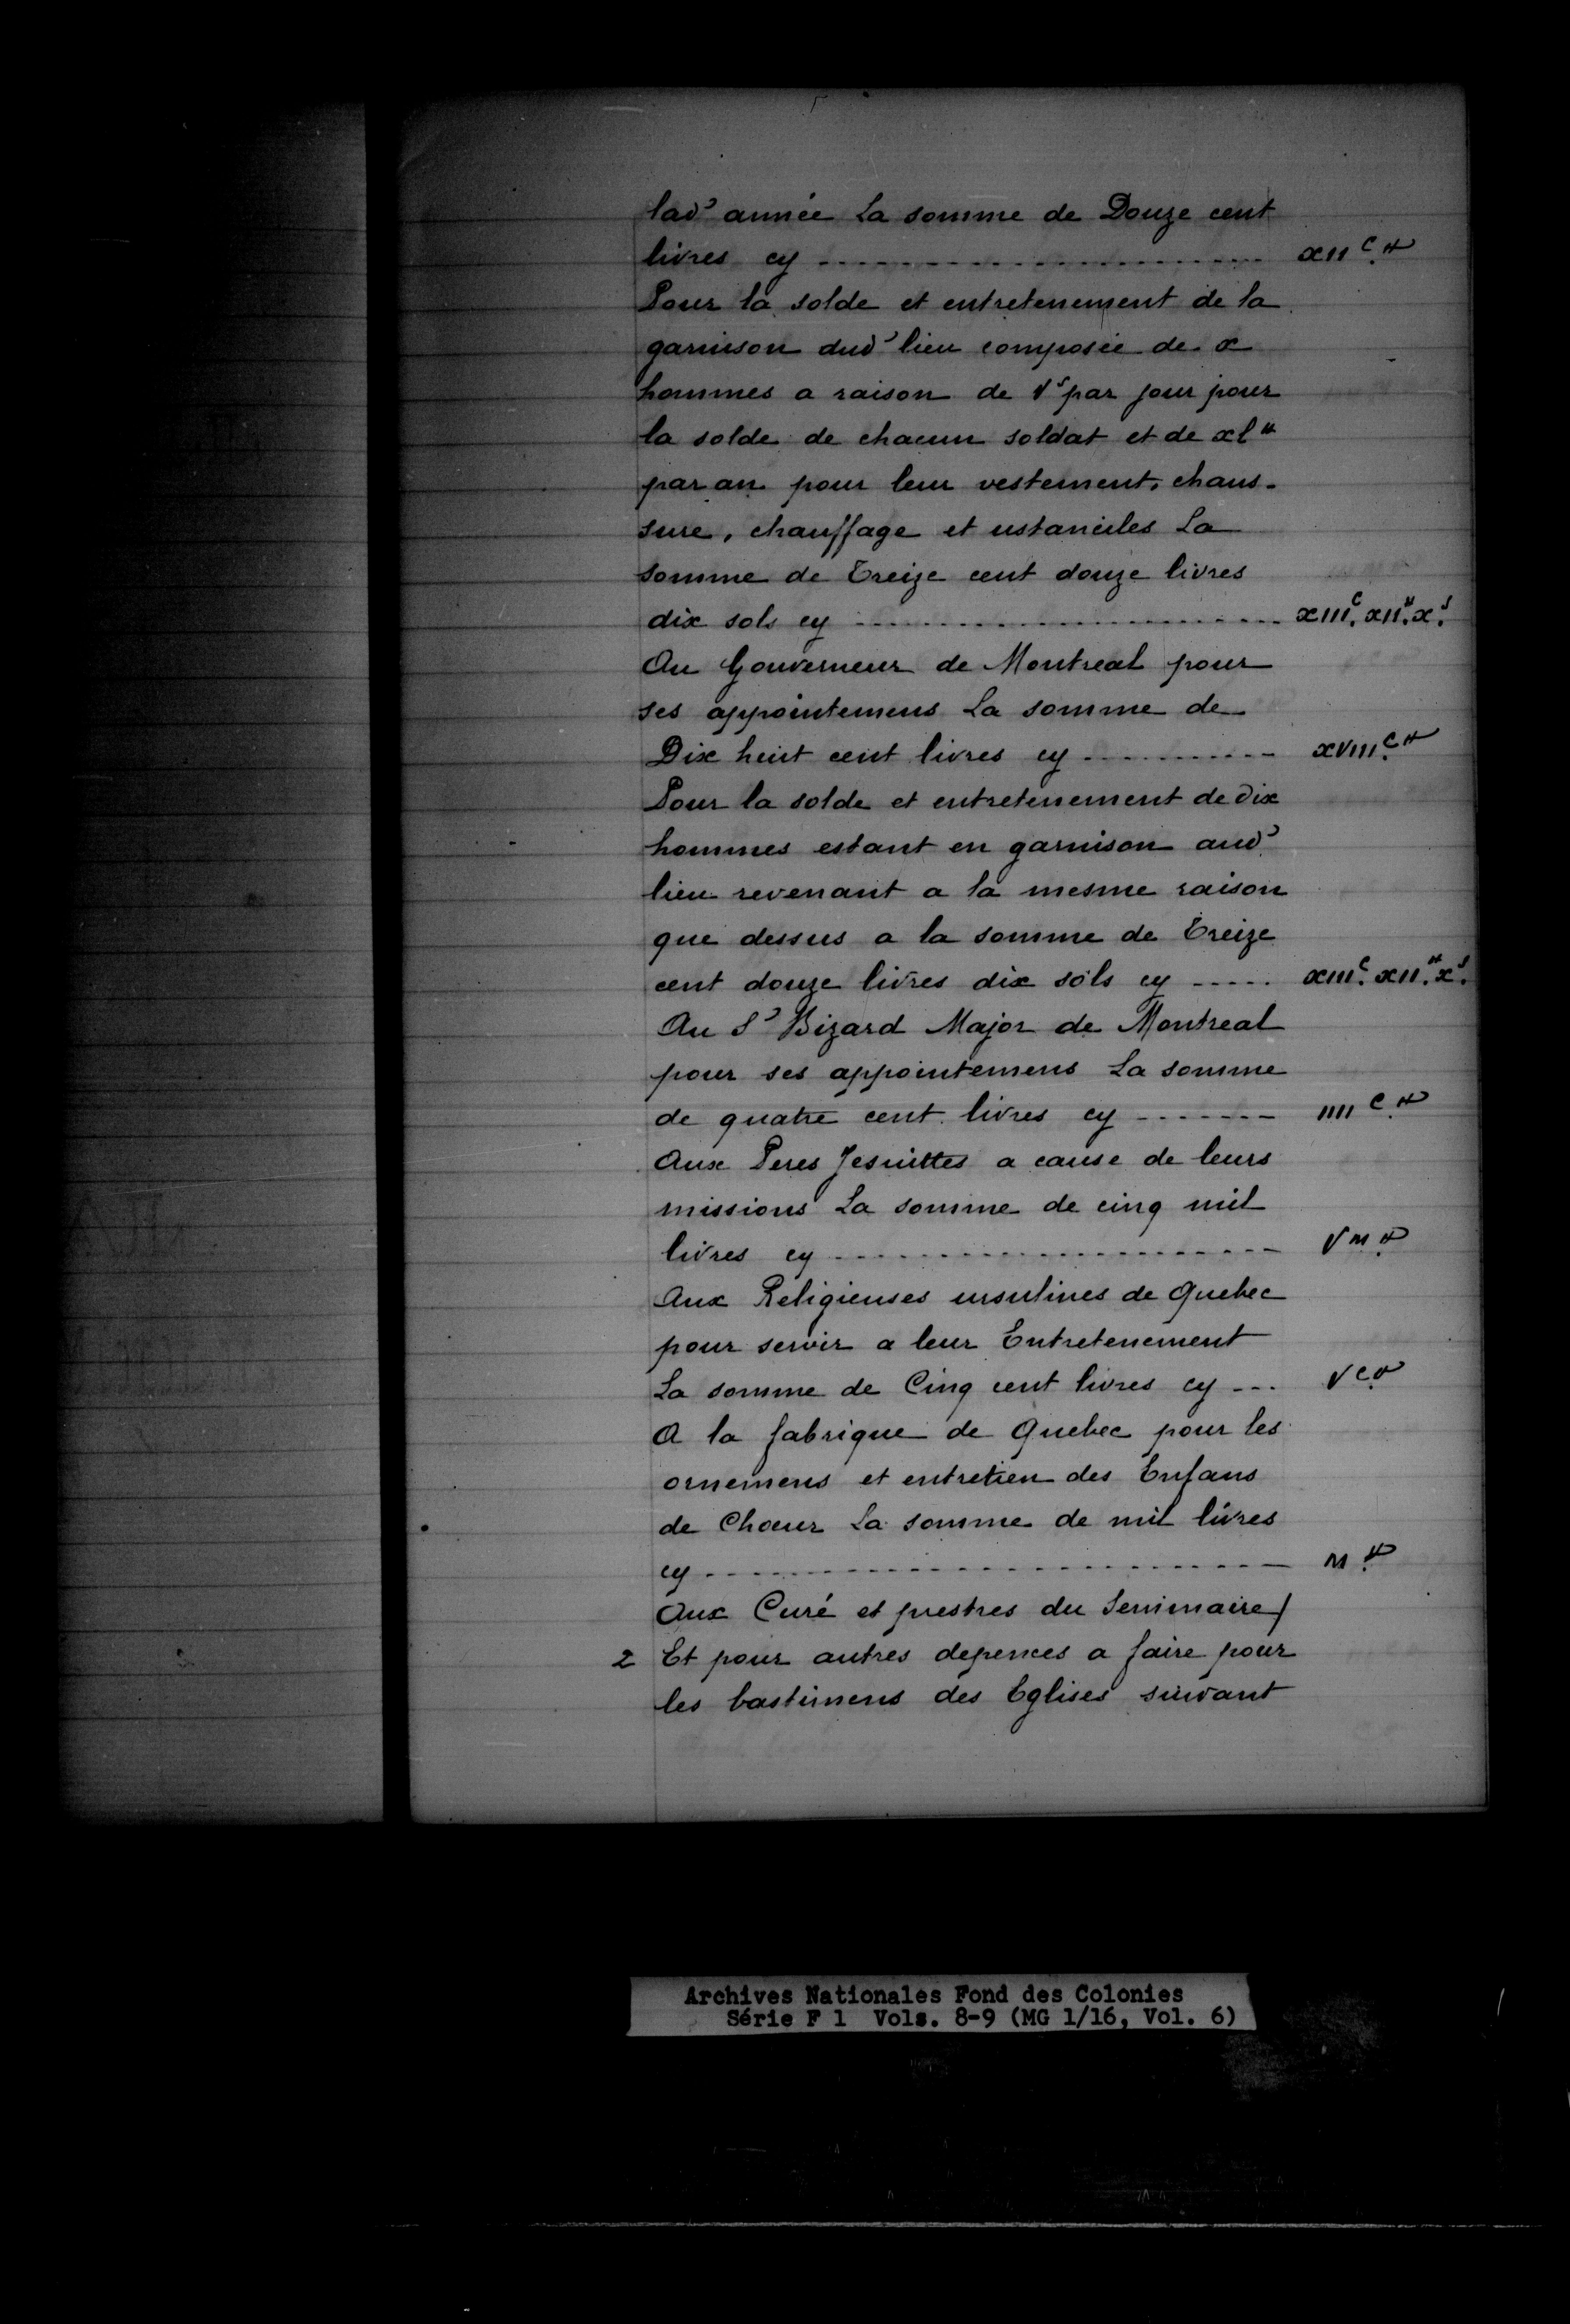 lad' année La somme de Douze cent
livres cy ........................ XII C ₶
Pour la solde et entretenement de la
garnison dud' lieu composée de x
hommes a raison de V s par jour pour
la solde de chacun soldat et de xl ₶
par an pour leur vestement, chaus-
sure, chauffage et ustancilles La
somme de Treize cent douze livres
dix sols cy ........................ XIII C. XII ₶. X s.
Au Gouverneur de Montreal pour
ses appointemens La somme de
Dix huit cent livres cy ........... XVIII C. ₶
Pour la solde et entretenement de dix
hommes estant en garnison aud'
lieu revenant a la mesme raison
que dessus a la somme de Treize
cent douze livres dix sols cy ..... XIII C. XII ₶. X s.
Au S' Bizard Major de Montreal
pour ses appointemens La somme
de quatre cent livres cy ------- IIII C. ₶
Aux Peres Jesuittes a cause de leurs
missions La somme de cinq mil
livres cy ........................ V M ₶
Aux Religieuses ursulines de Quebec
pour servir a leur Entretenement
La somme de Cinq cent livres cy --- V C ₶
A la fabrique de Quebec pour les
ornemens et entretien des Enfans
de Chœur La somme de mil livres
cy ........................ M ₶
Aux Curé et prestres du Seminaire/
2 Et pour autres depences a faire pour
les bastimens des Eglises suivant
Archives Nationales Fond des Colonies
Série F 1 Vols. 8-9 (MG 1/16, Vol. 6)